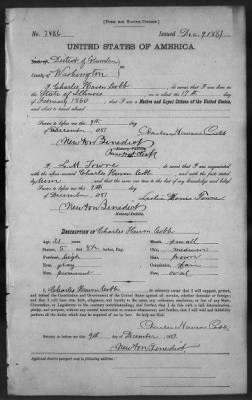 [FORM FOR NATIVE CITIZEN.]
No. 7486 Issued Dec. 9, 1881
UNITED STATES OF AMERICA.
District of Columbia
County of Washington
I, Charles Haven Cobb, do swear that I was born in the
State of Illinois, on or about the 17th day
of February 1860, that I am a Native and Loyal Citizen of the United States,
and about to travel abroad.
Sworn to before me this 9th day
of December 1881
Charles Haven Cobb
Newton Benedict
Notary Public.
I, L. M. Towne, do swear that I am acquainted with
the above-named Charles Haven Cobb, and with the facts stated
by him, and that the same are true to the best of my knowledge and belief.
Sworn to before me this 9th day
of December 1881
Newton Benedict
Notary Public.
DESCRIPTION OF Charles Haven Cobb
Age, 21 years. Mouth, small
Stature, 5 feet inches, Eng. Chin, medium
Forehead, high Hair, brown
Eyes, gray Complexion,
Nose, prominent Face, oval
I, Charles Haven Cobb, do solemnly swear that I will support, protect, and
defend the Constitution and Government of the United States against all enemies, whether domestic or foreign;
and that I will bear true faith, allegiance, and loyalty to the same, any ordinance, resolution, or law of any State,
Convention, or Legislature to the contrary notwithstanding; and further, that I do this with a full determination,
pledge, and purpose, without any mental reservation or evasion whatsoever; and further, that I will well and faithfully
perform all the duties which may be required of me by law: So help me God.
Charles Haven Cobb
Sworn to before me this 9th day of December 1881
Newton Benedict
Applicant desires passport to be